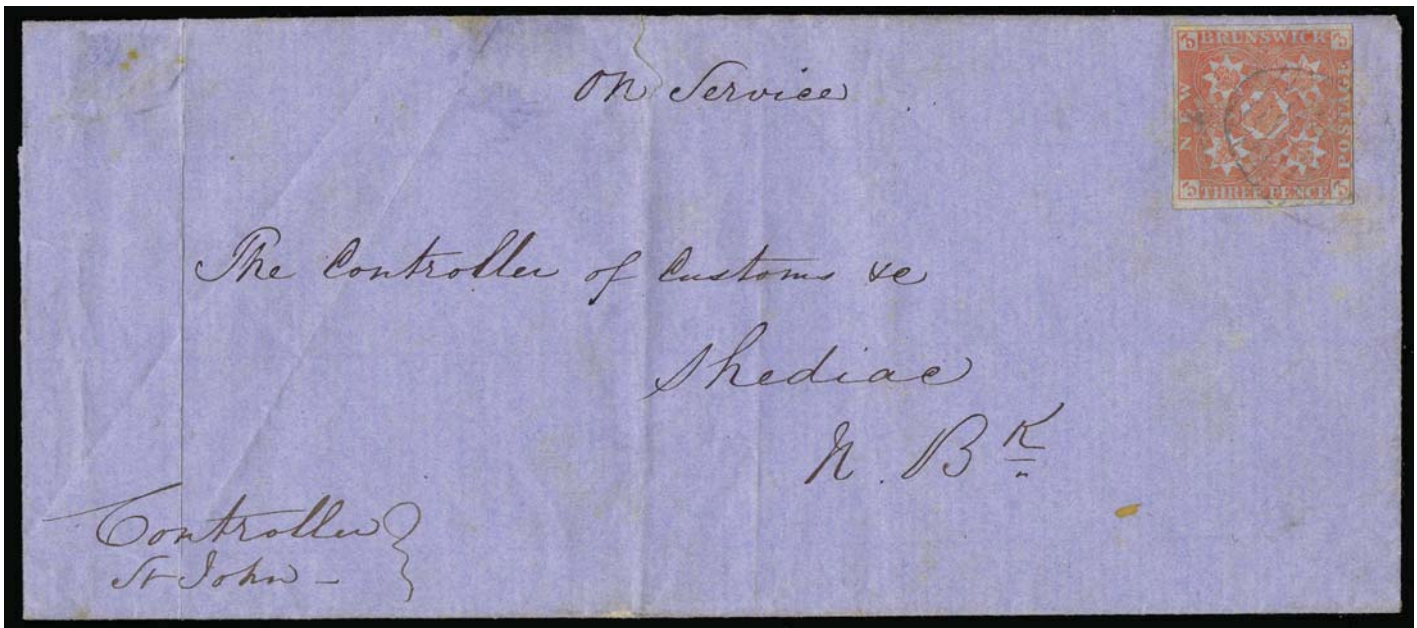 On Service
3 BRUNSWICK 3
NEW
POSTAGE
3 THREE PENCE 3
The Controller of Customs &c
Shediac
N. Bk
Controller
St John –